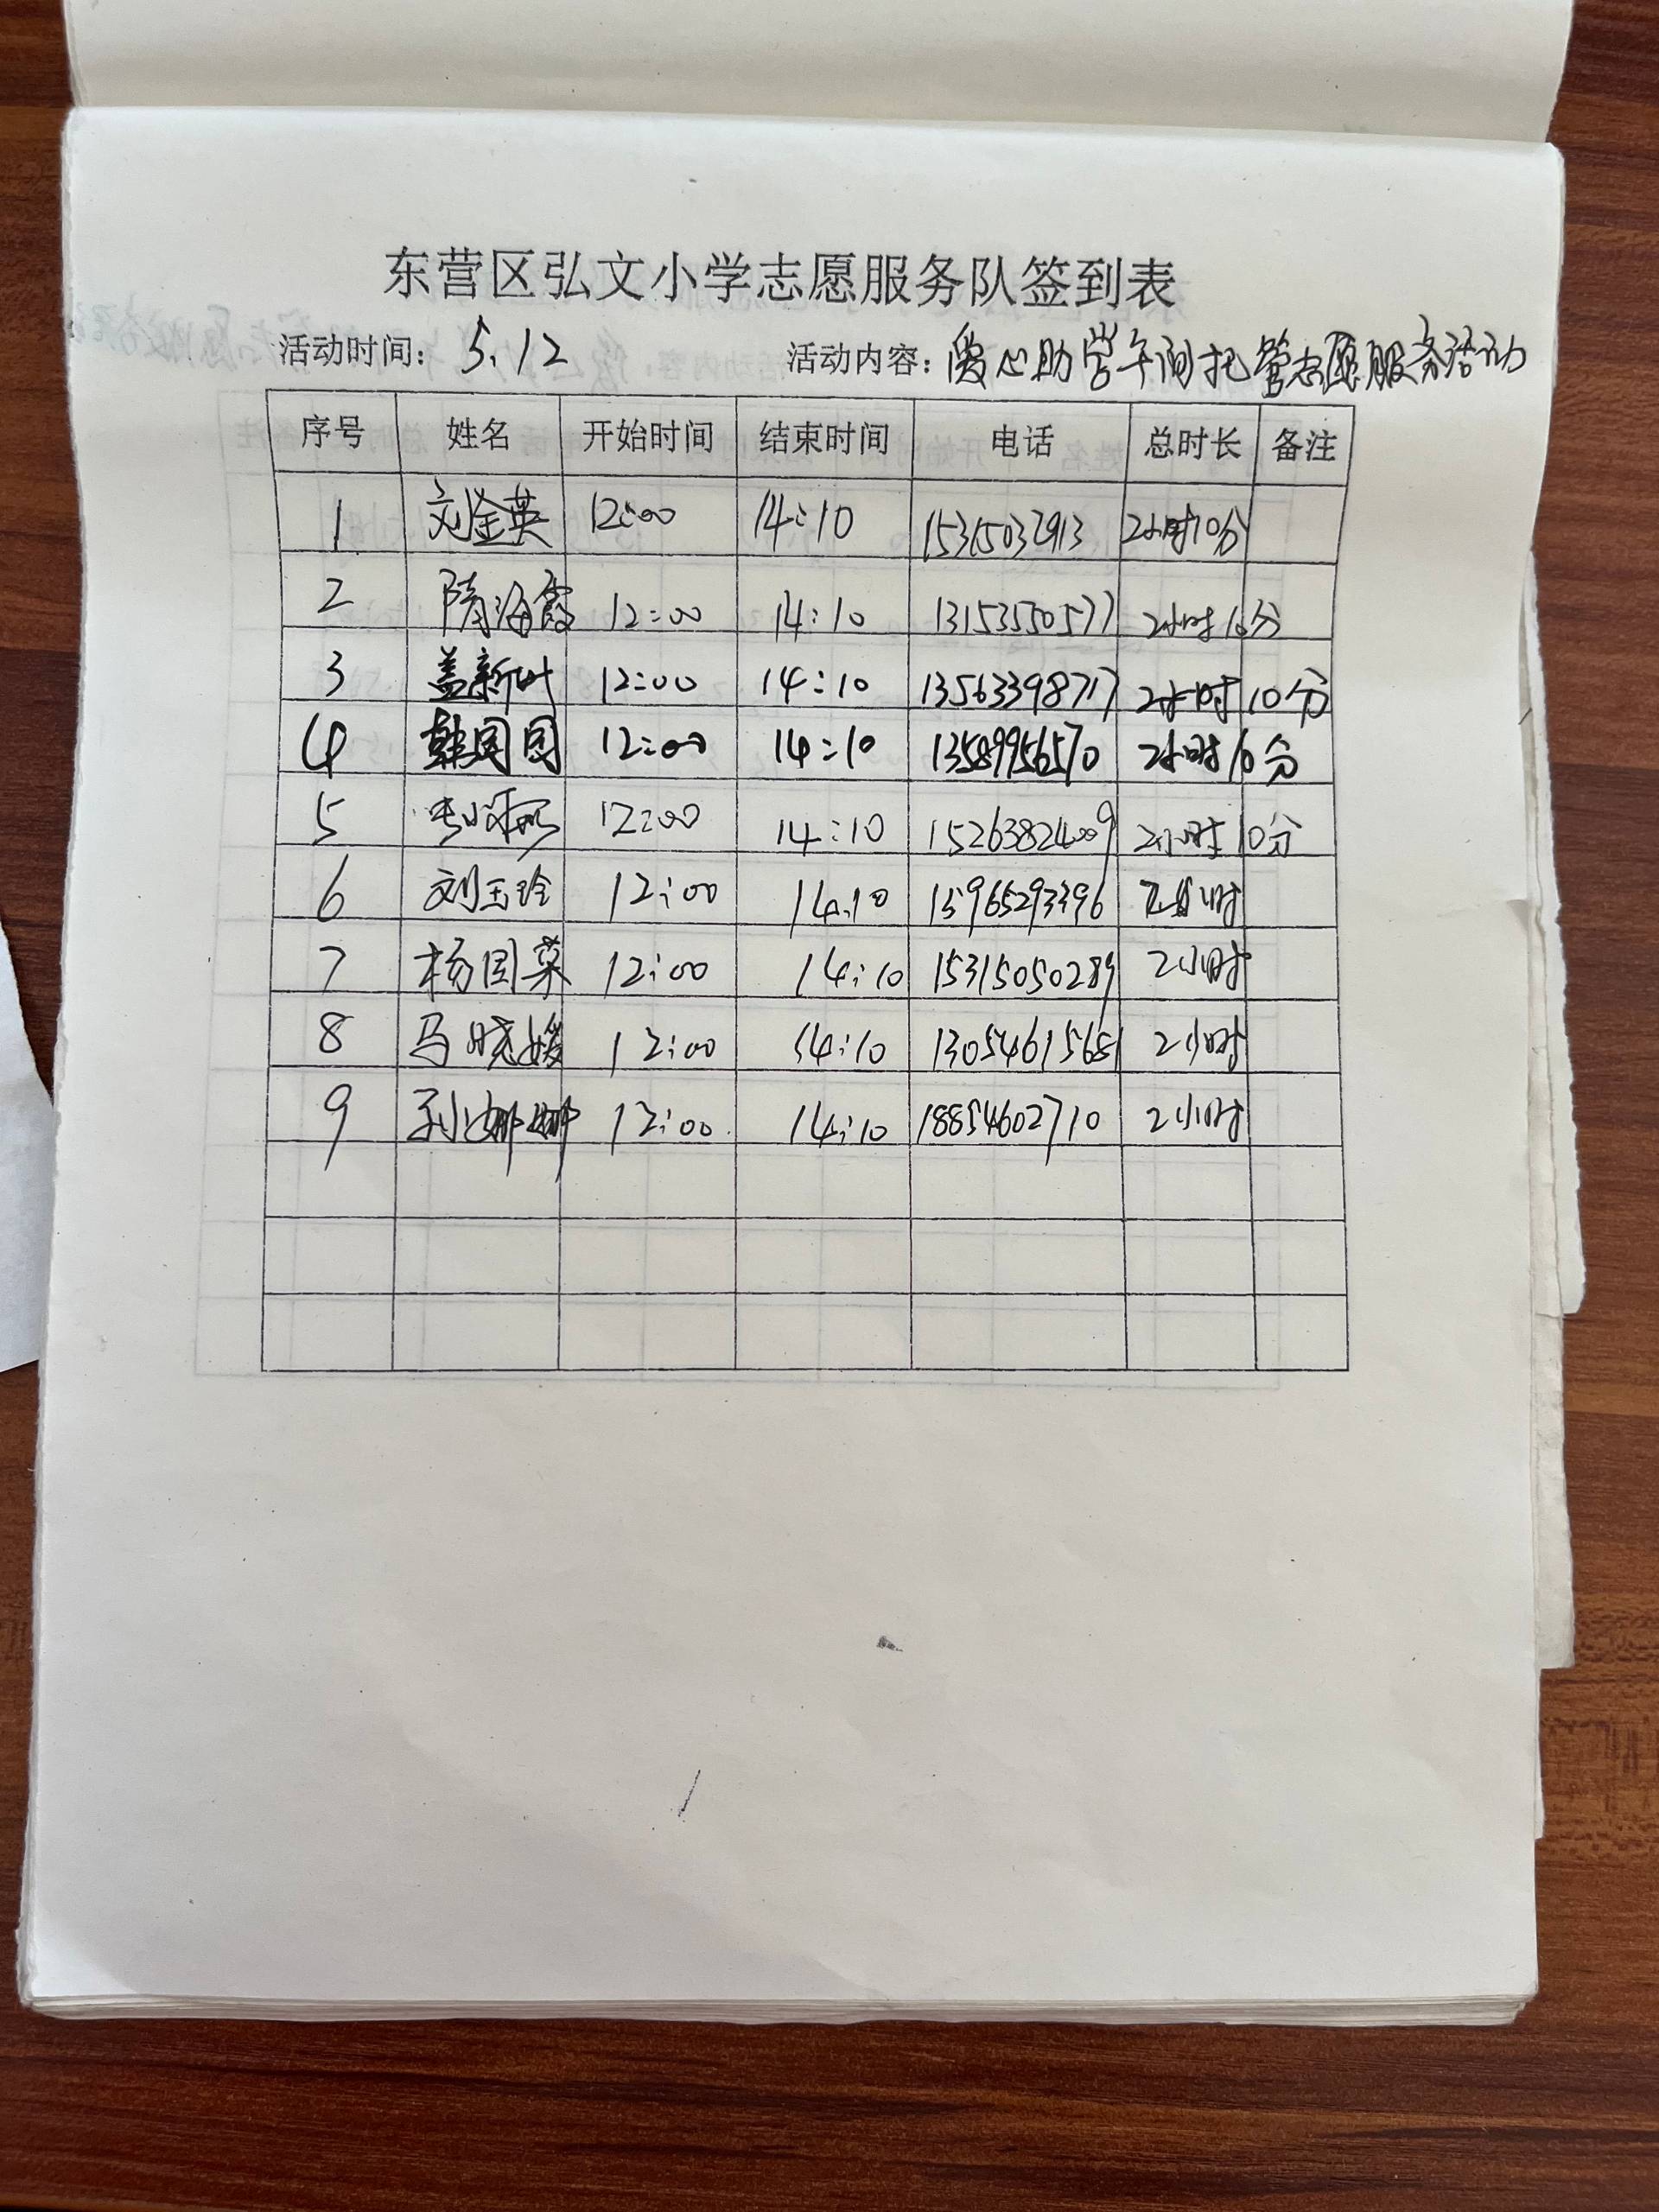 东营区弘文小学志愿服务队签到表
活动时间: 5.12 活动内容: 爱心助学午间托管志愿服务活动
序号 姓名 开始时间 结束时间 电话 总时长 备注
1 刘金英 12:00 14:10 15315032913 2小时10分
2 隋海霞 12:00 14:10 13153550577 2小时10分
3 盖新叶 12:00 14:10 13563398717 2小时10分
4 韩园园 12:00 14:10 13589956570 2小时10分
5 12:00 14:10 15263824009 2小时10分
6 刘玉玲 12:00 14:10 15965293396 小时
7 杨国菜 12:00 14:10 15315050289 2小时
8 马晓媛 12:00 14:10 13054615681 2小时
9 孙娜娜 12:00 14:10 18854602710 2小时